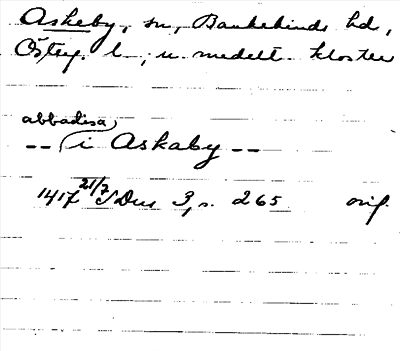 Askeby, sn, Bankekinds hd,
Östg. l–, u. medelt. kloster
abbadisa
-- i Askaby --
1417 21/7 SDns 3, s. 265 orig.